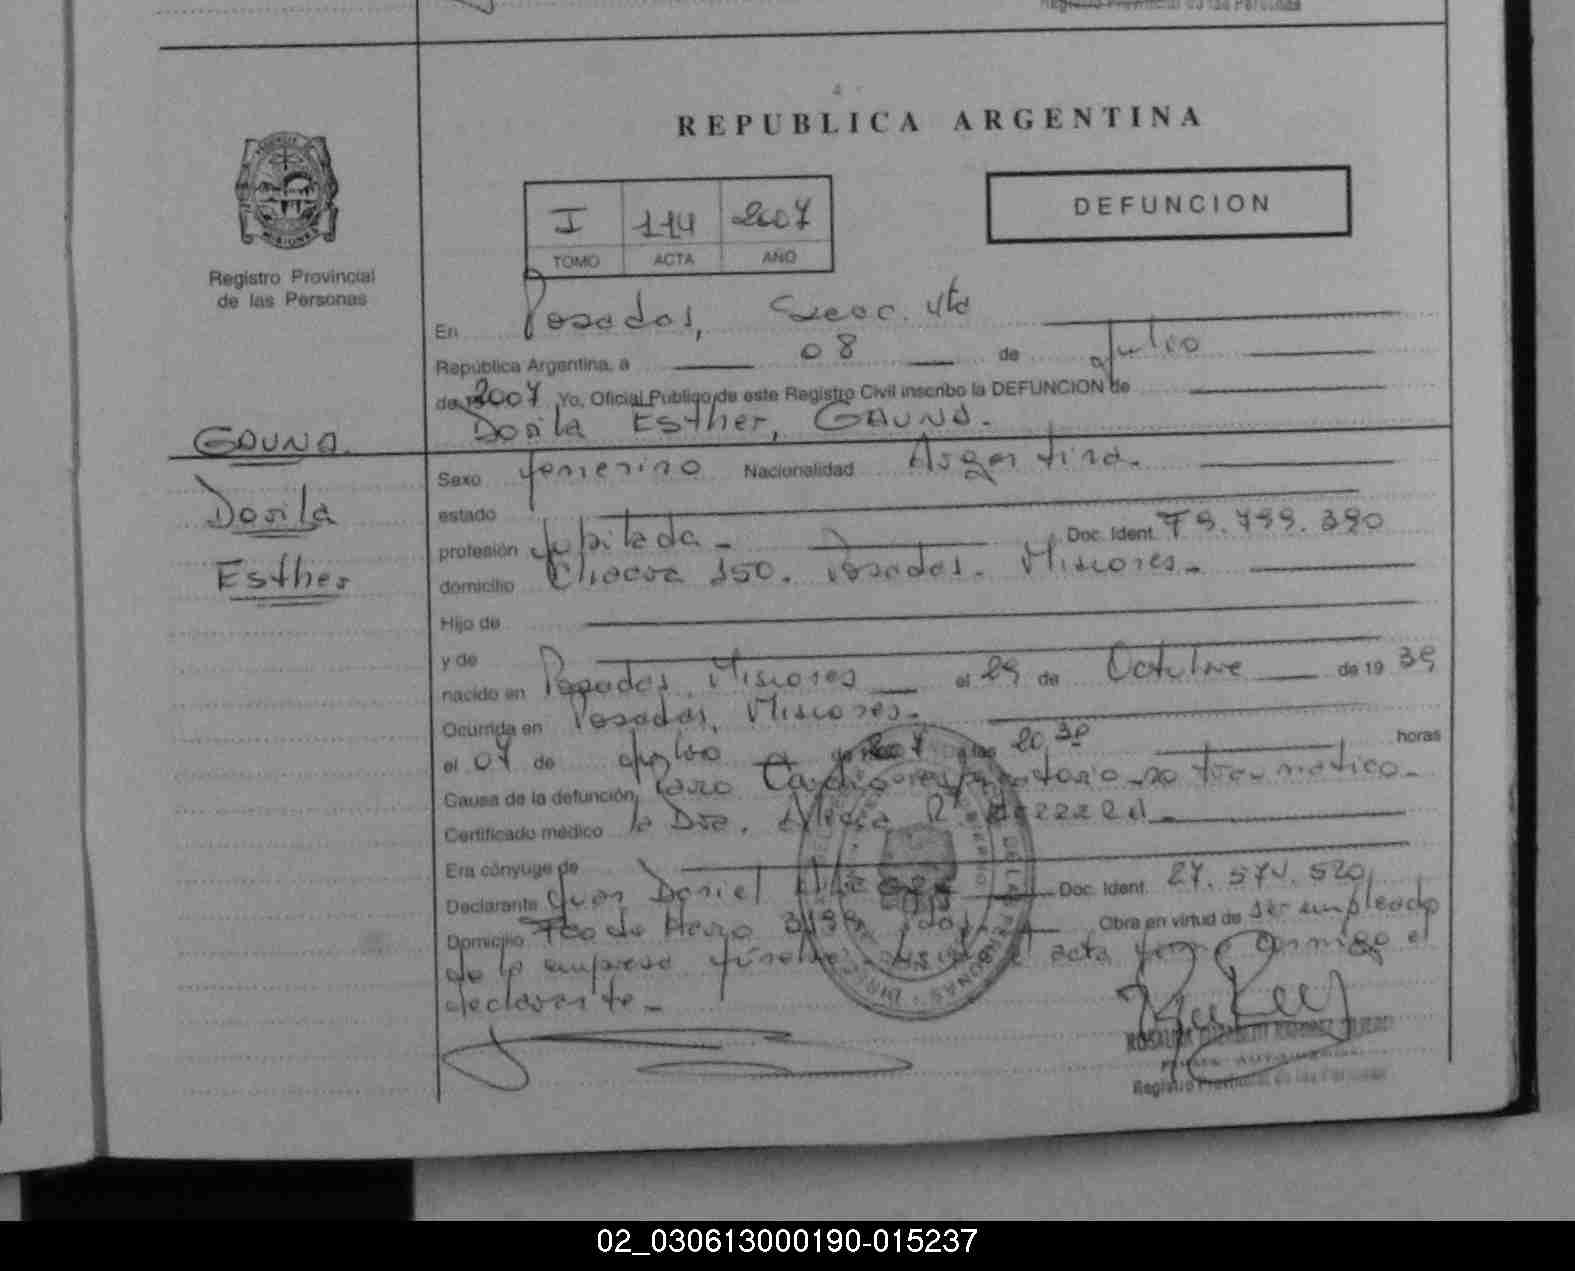 Registro Provincial de las Personas
REPUBLICA ARGENTINA
I 114 2007
TOMO ACTA AÑO
DEFUNCION
MISIONES
Registro Provincial
de las Personas
En Posados, Secc. 4ta
República Argentina, a 08 de Julio
de 2007 Yo, Oficial Publico de este Registro Civil inscribo la DEFUNCION de
Dorila Esther, GAUNA.
GAUNA.
Dorila
Esther
Sexo femenino Nacionalidad Argentina.
estado
profesión Jubilada - Doc. Ident. F 9.799.390
domicilio 150. Posadas. Misiones -
Hijo de
y de
nacido en Posadas, Misiones el 29 de Octubre de 19 39
Ocurrida en Posadas, Misiones.
el 07 de Julio de 2007 a las 20,30 horas
Causa de la defunción Paro Cardiorespiratorio no traumatico -
Certificado médico la Dra. Alicia R.
Era cónyuge de
Declarante Juan Daniel Doc. Ident. 27.574.520
Domicilio de Haro Obra en virtud de ser empleado
de la empresa acta conmigo el
declarante -
Registro Provincial de las Personas
02_030613000190-015237